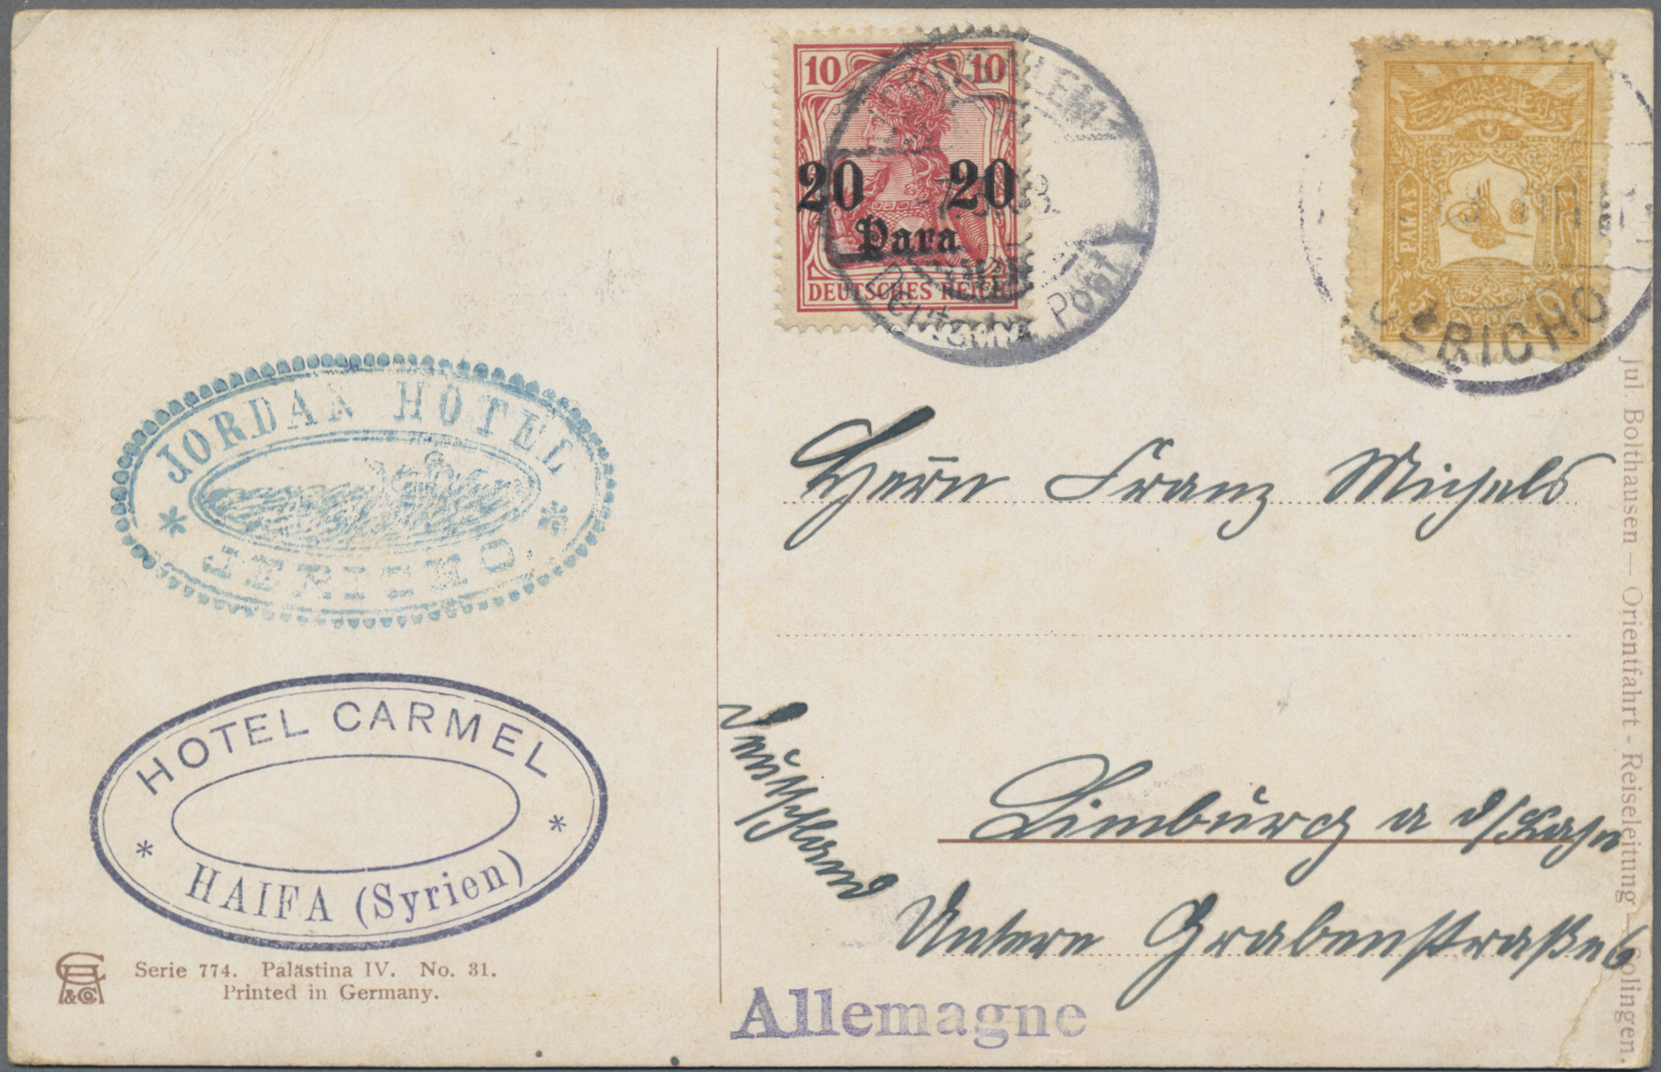 10 10
20 20
Para
DEUTSCHES REICH
JERUSALEM
Deutsche Post
PARAS
JERICHO
JORDAN HOTEL
* *
JERICHO
HOTEL CARMEL
* *
HAIFA (Syrien)
Herrn Franz Michels
Limburg a d/Lahn
Untere Grabenstraße 6
Deutschland
Allemagne
&Co
Serie 774. Palästina IV. No. 31.
Printed in Germany.
Jul. Bolthausen — Orientfahrt - Reiseleitung - Solingen.